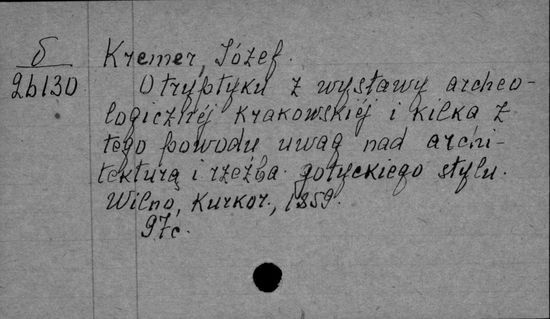 б
26130
Kremer, Józef.
O tryptyku z wystawy archeo-
logicznéj krakowskiéj i kilka z
tego powodu uwag nad archi-
tekturą i rzeźba gotyckiego stylu.
Wilno, Kurkor., 1859.
97c.